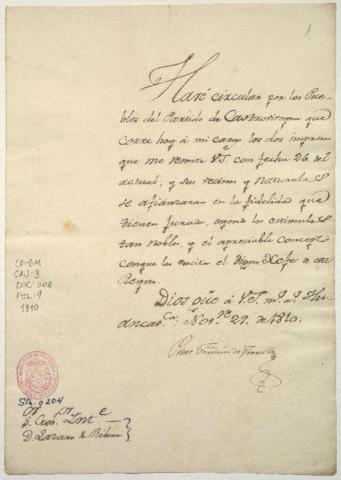 1
Haré circular por los Pue-
blos del Partido de Castroverreyna que
corre hoy á mi cargo los dos impresos
que me remite V.S. con fecha 26 del
actual; y sus vecinos y naturales
se afianzaran en la fidelidad que
tienen jurada, oyendo los estimulos
tan nobles, y el apreciable concepto
conque los excita el Exmo Xefe de este
Reyno.
Dios güe á V.S. ms. as.
Novre 29. de 1810.
CO-BM
CAJ: 3
DOC: 204
FOL: 1
1810
Sta-0204
Sr Gobor Inte
D. Lazaro de Ribera